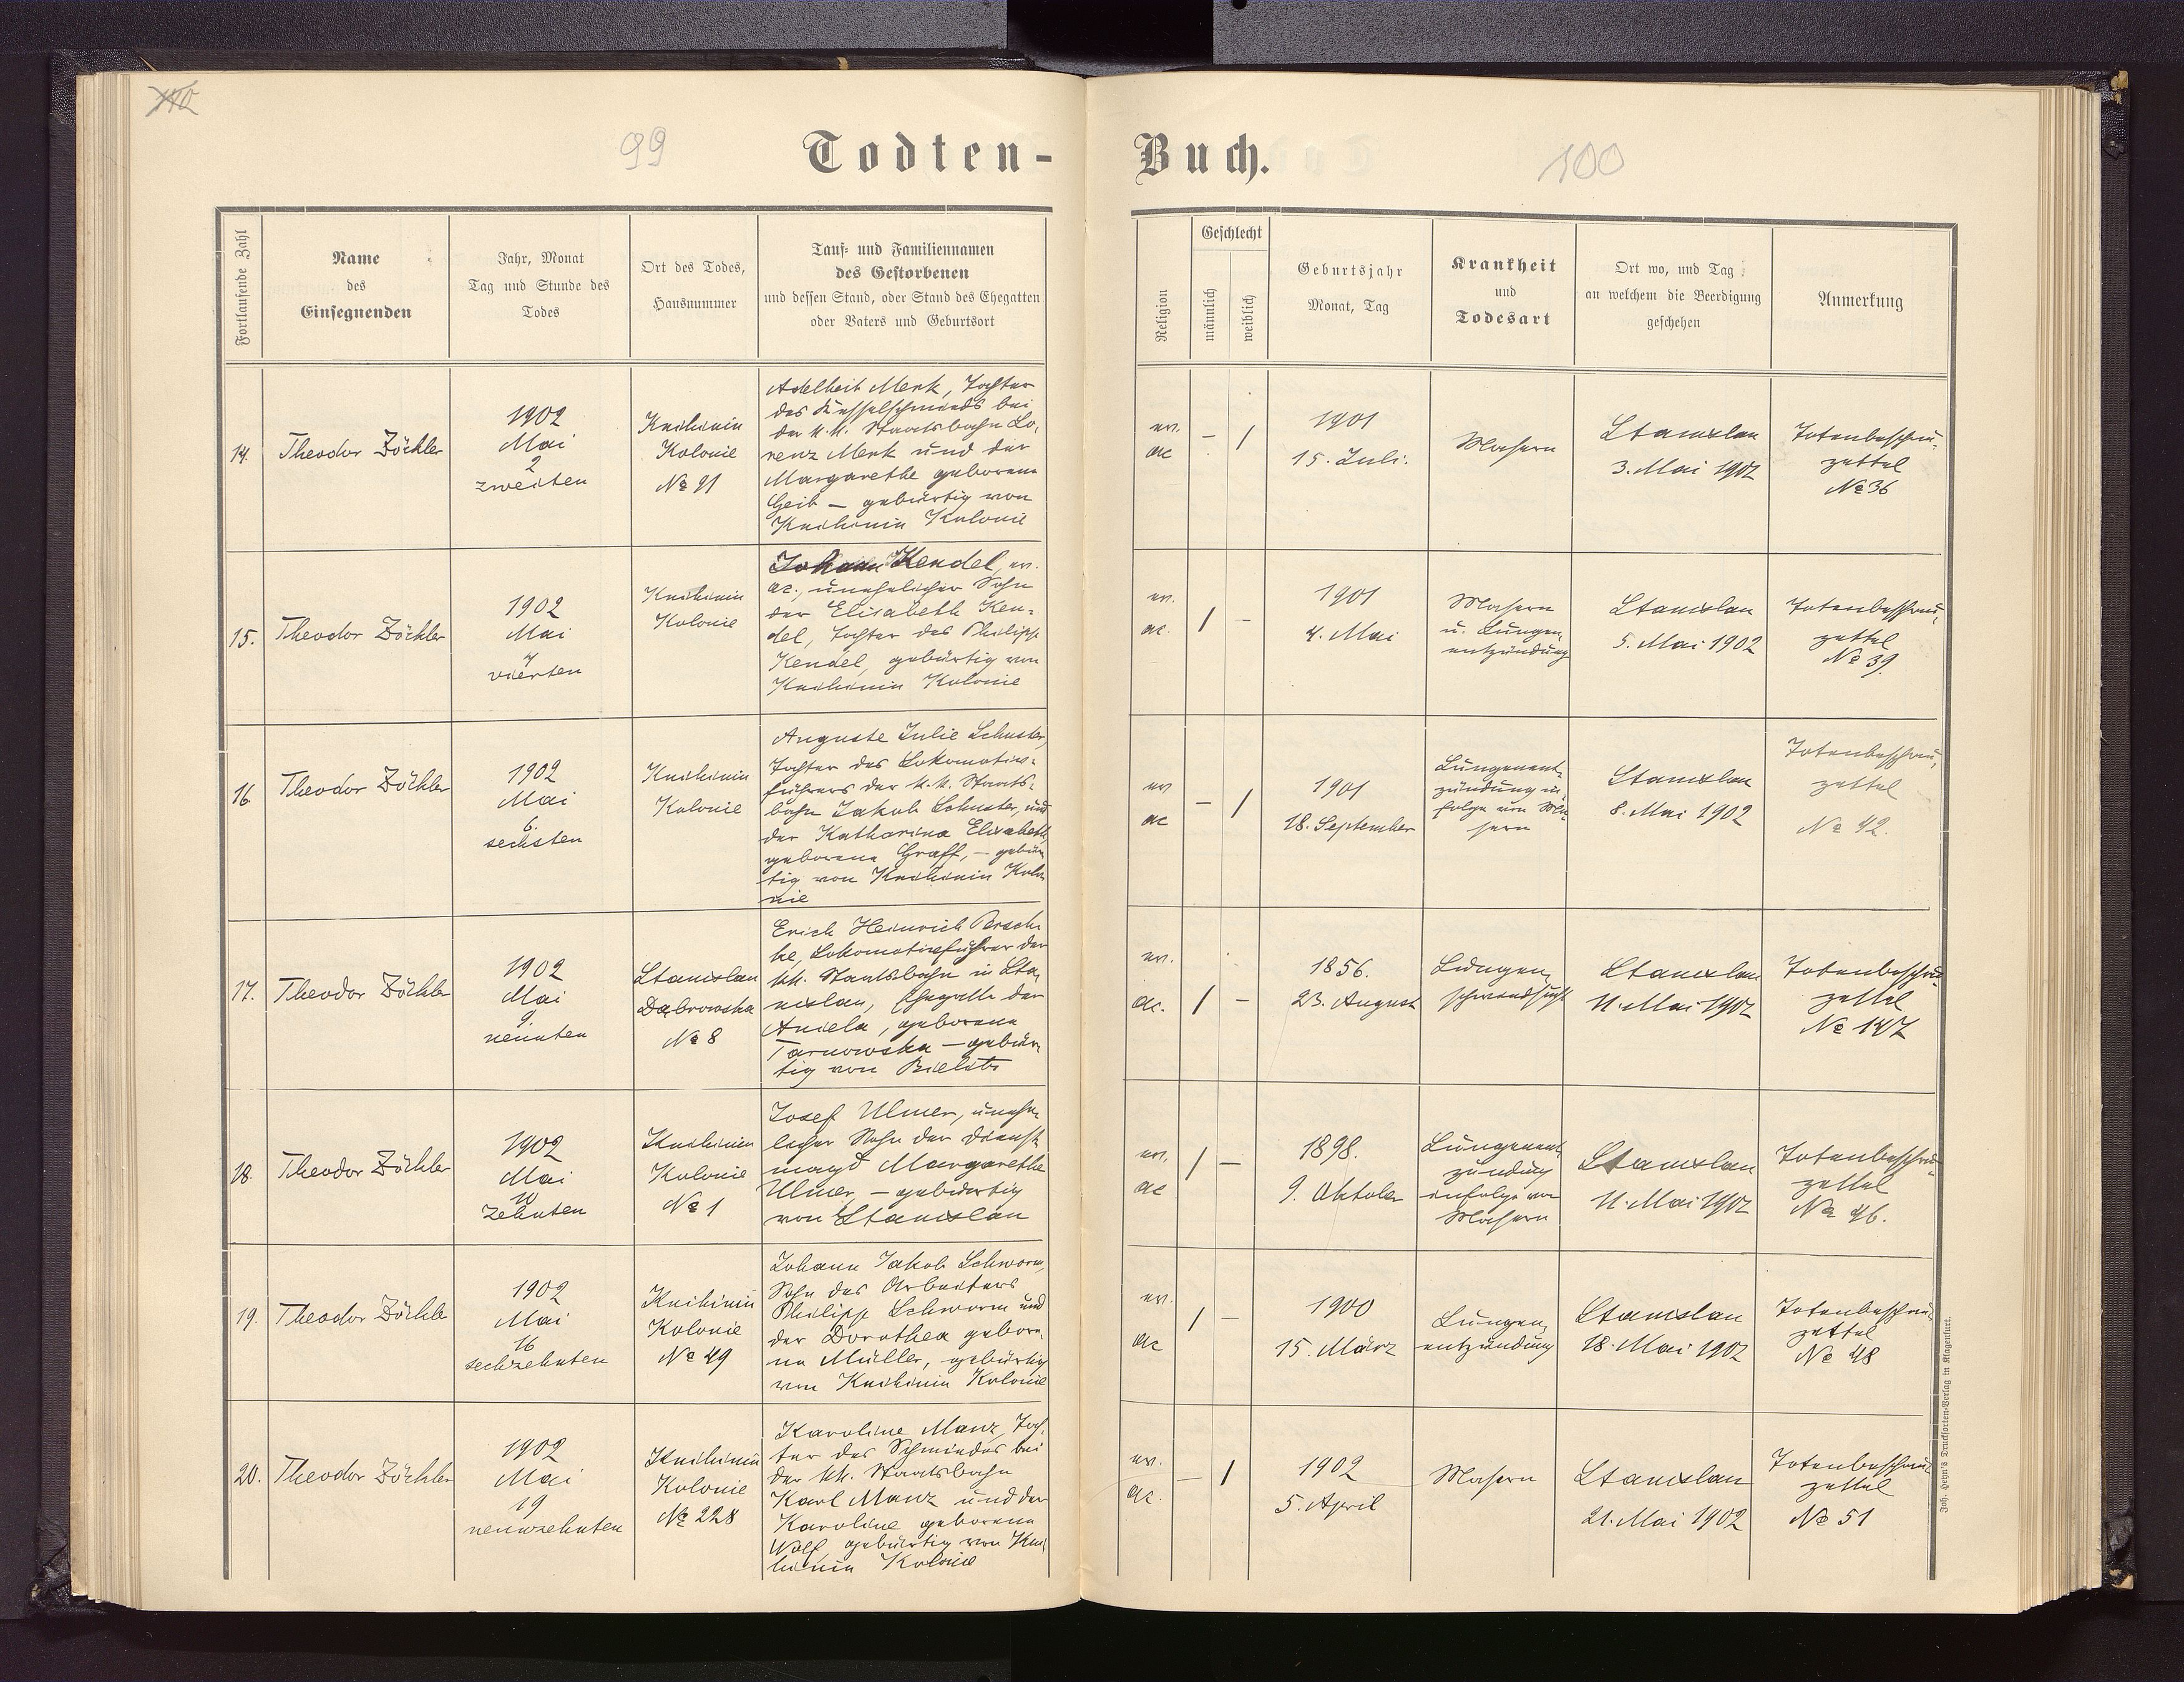 99
Todten-
Buch.
100
Fortlaufende Zahl
Name
des
Einsegnenden
Jahr, Monat
Tag und Stunde des
Todes
Ort des Todes,
Hausnummer
Tauf- und Familiennamen
des Gestorbenen
und dessen Stand, oder Stand des Ehegatten
oder Vaters und Geburtsort
Religion
Geschlecht
männlich
weiblich
Geburtsjahr
Monat, Tag
Krankheit
und
Todesart
Ort wo, und Tag
an welchem die Beerdigung
geschehen
Anmerkung
14.
Theodor Zöckler
1902
Mai
2
zweiten
Knihinin
Kolonie
№ 91
Adelheit Merk, Tochter
des Kesselschmieds bei
der k.k. Staatsbahn Lo-
renz Merk und der
Margarethe geborene
Geib – gebürtig von
Knihinin Kolonie
ev.
ac
– /
1901
15. Juli.
Masern
Stanislau
3. Mai 1902
Totenbeschau-
zettel
№ 36
15.
Theodor Zöckler
1902
Mai
4
vierten
Knihinin
Kolonie
Johann Kendel, ev.
ac., unehelicher Sohn
der Elisabeth Ken-
del, Tochter des Philipp
Kendel, gebürtig von
Knihinin Kolonie
ev.
ac.
/ –
1901
4. Mai
Masern
u. Lungen-
entzündung
Stanislau
5. Mai 1902
Totenbeschau-
zettel
№ 39.
16.
Theodor Zöckler
1902
Mai
6.
sechsten
Knihinin
Kolonie
Auguste Julie Schuster,
Tochter des Lokomotiv-
führers der k.k. Staats-
bahn Jakob Schuster, und
der Katharina Elisabeth
geborene Graff, – gebür-
tig von Knihinin Kolo-
nie
ev
ac
– /
1901
18. September
Lungenent-
zündung in-
folge von Ma-
sern
Stanislau
8. Mai 1902
Totenbeschau-
zettel
№ 42.
17.
Theodor Zöckler
1902
Mai
9.
neunten
Stanislau
Dąbrowska
№ 8
Erich Heinrich Persch-
ke, Lokomotivführer der
kk. Staatsbahn in Sta-
nislau, Ehegatte der
Aniela, geborene
Tarnowska – gebür-
tig von Bielitz
ev.
ac.
/ –
1856.
23. August
Lungen-
schwindsucht
Stanislau
11. Mai 1902
Totenbeschau-
zettel
№ 147
18.
Theodor Zöckler
1902
Mai
10
zehnten
Knihinin
Kolonie
№ 1
Josef Ulmer, unehe-
licher Sohn der Dienst-
magd Margarethe
Ulmer, – gebürtig
von Stanislau
ev.
ac
/ –
1898.
9. Oktober
Lungenent-
zündung
infolge von
Masern
Stanislau
11. Mai 1902
Totenbeschau-
zettel
№ 46.
19.
Theodor Zöckler
1902
Mai
16
sechzehnten
Knihinin
Kolonie
№ 49
Johann Jakob Schworm,
Sohn des Arbeiters
Philipp Schworm und
der Dorothea gebore-
ne Müller, gebürtig
von Knihinin Kolonie
ev.
ac
/ –
1900
15. März
Lungen-
entzündung
Stanislau
18. Mai 1902
Totenbeschau-
zettel
№ 48
20.
Theodor Zöckler
1902
Mai
19
neunzehnten
Knihinin
Kolonie
№ 228
Karoline Manz, Toch-
ter des Schmiedes bei
der kk. Staatsbahn
Karl Manz und der
Karoline geborene
Wolf, gebürtig von Kni-
hinin Kolonie
ev.
ac.
– /
1902
5. April
Masern
Stanislau
21. Mai 1902
Totenbeschau-
zettel
№ 51
Joh. Heyn's Drucksorten-Verlag in Klagenfurt.